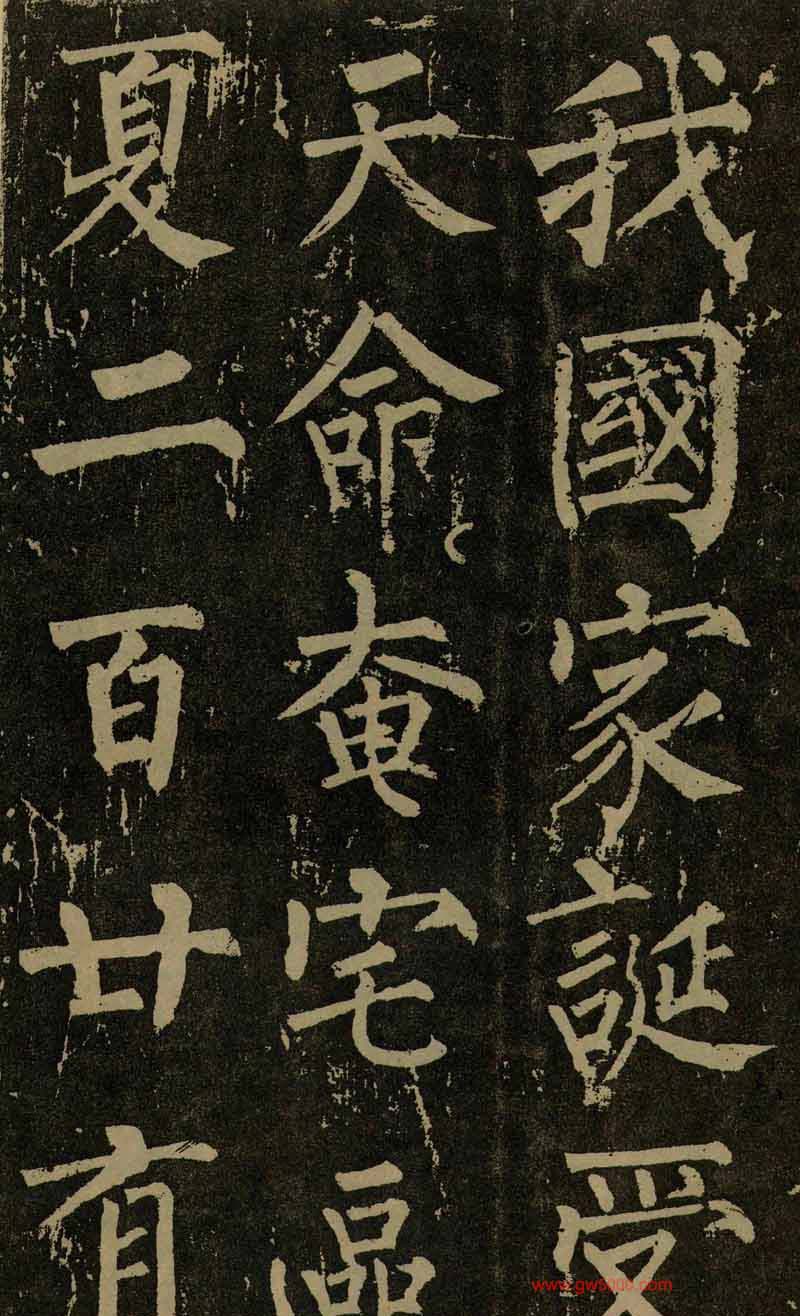 我國家誕受
天命奄宅區
夏二百廿有
www.gw500x.com